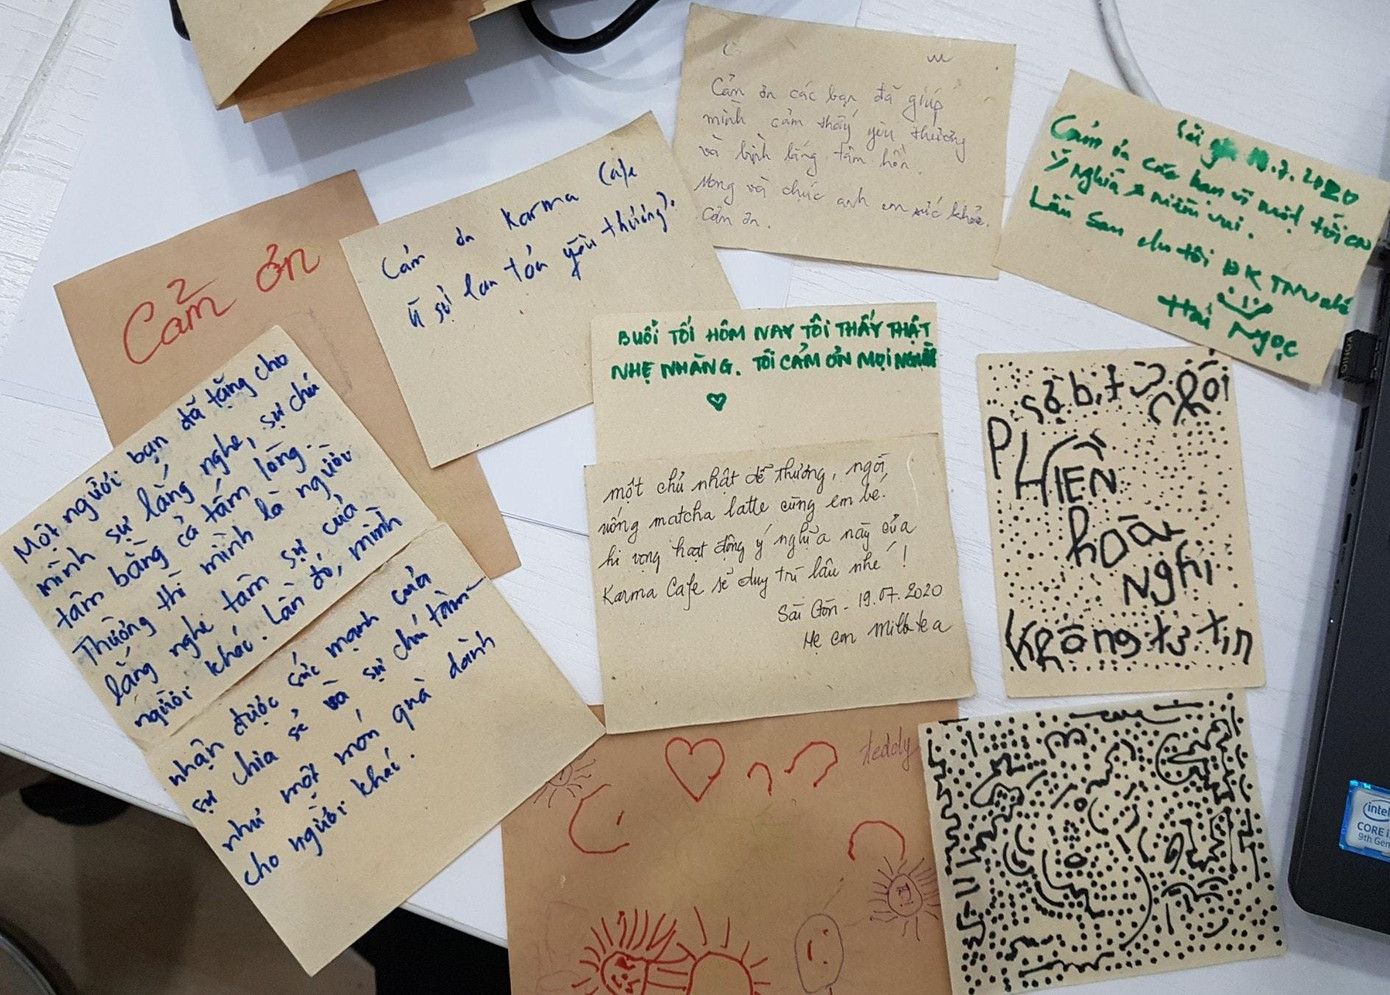 Cảm ơn các bạn đã giúp
mình cảm thấy yêu thương
và bình lặng tâm hồn.
Mong và chúc anh em sức khỏe.
Cảm ơn.
Sài gòn 19.7.2020
Cám ơn các bạn vì một tối có
ý nghĩa & niềm vui.
Lần sau cho tôi ĐK
Hải Ngọc
Cám ơn Karma Cafe
vì sự lan tỏa yêu thương.
Cảm ơn
BUỔI TỐI HÔM NAY TÔI THẤY THẬT
NHẸ NHÀNG. TÔI CẢM ƠN MỌI NGƯỜI
Một người bạn đã tặng cho
mình sự lắng nghe, sự chú
tâm bằng cả tấm lòng.
Thường thì mình là người
lắng nghe tâm sự của
người khác. Lần đó, mình
nhận được sức mạnh của
sự chia sẻ và sự chú tâm
như một món quà dành
cho người khác.
một chủ nhật dễ thương, ngồi
uống matcha latte cùng em bé.
hi vọng hoạt động ý nghĩa này của
Karma Cafe sẽ duy trì lâu nhé!
Sài Gòn - 19.07.2020
Mẹ con
Sợ bị từ chối
PHIỀN
hoài
nghi
không tự tin
teddy
intel
CORE
9th Gen